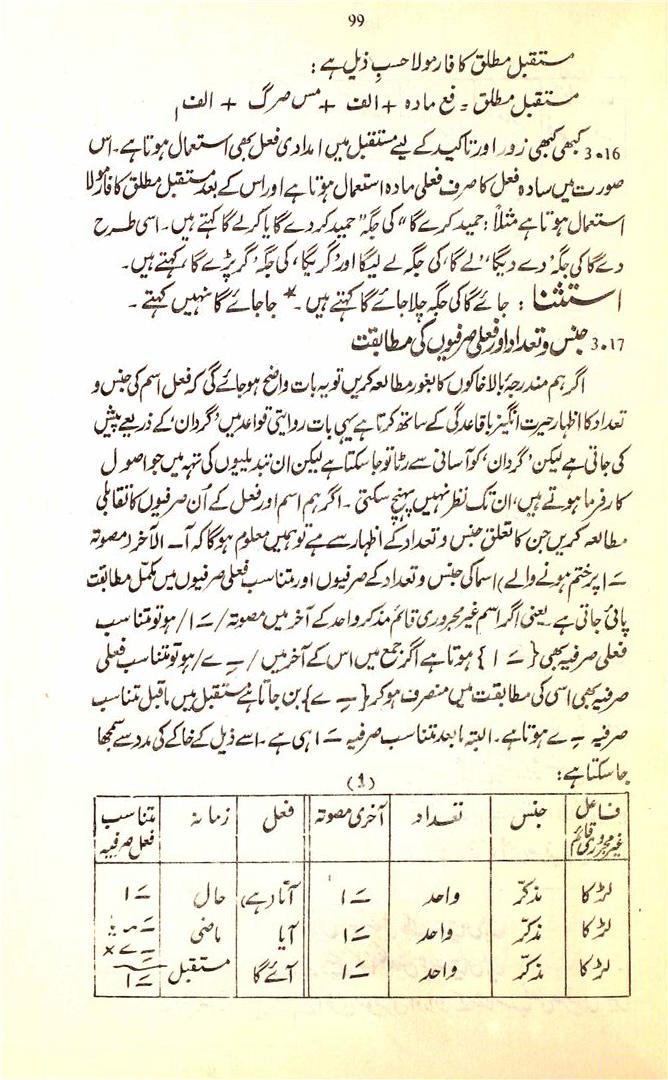 99
مستقبل مطلق کا فارمولا حسبِ ذیل ہے :
مستقبل مطلق = فع مادہ + الف + مس صرگ + الف
3.16 کبھی کبھی زور اور تاکید کے لیے مستقبل میں امدادی فعل بھی استعمال ہوتا ہے۔ اس
صورت میں سادہ فعل کا صرف فعلی مادہ استعمال ہوتا ہے اور اس کے بعد مستقبل مطلق کا فارمولا
استعمال ہوتا ہے مثلاً : حمید کرے گا" کی جگہ "حمید کر دے گا یا کرلے گا کہتے ہیں۔ اسی طرح
دے گا کی جگہ 'دے دیگا'، 'لے گا' کی جگہ لے لیگا اور 'گریگا' کی جگہ 'گر پڑے گا' کہتے ہیں۔
استثنا : جائے گا کی جگہ چلا جائے گا کہتے ہیں۔ * جا جائے گا نہیں کہتے۔
3.17 جنس و تعداد اور فعلی صرفیوں کی مطابقت
اگر ہم مندرجۂ بالا خاکوں کا بغور مطالعہ کریں تو یہ بات واضح ہو جائے گی کہ فعل اسم کی جنس و
تعداد کا اظہار حیرت انگیز باقاعدگی کے ساتھ کرتا ہے یہی بات روایتی قواعد میں 'گردان' کے ذریعے پیش
کی جاتی ہے لیکن 'گردان' کو آسانی سے رٹا تو جا سکتا ہے لیکن ان تبدیلیوں کی تہہ میں جو اصول
کارفرما ہوتے ہیں، ان تک نظر نہیں پہنچ سکتی۔ اگر ہم اسم اور فعل کے اُن صرفیوں کا تقابلی
مطالعہ کریں جن کا تعلق جنس و تعداد کے اظہار سے ہے تو ہمیں معلوم ہوگا کہ آ۔ الآخر (مصوتہ
ـَ ا پر ختم ہونے والے) اسما کی جنس و تعداد کے صرفیوں اور متناسب فعلی صرفیوں میں مکمل مطابقت
پائی جاتی ہے۔ یعنی اگر اسم غیر مجروری قائم مذکر واحد کے آخر میں مصوتہ /ـَ ا/ ہو تو متناسب
فعلی صرفیہ بھی {ـَ ا} ہوتا ہے اگر جمع میں اس کے آخر میں /ـِ ے/ ہو تو متناسب فعلی
صرفیہ بھی اسی کی مطابقت میں منصرف ہو کر {ـِ ے} بن جاتا ہے مستقبل میں ماقبل متناسب
صرفیہ ـِ ے ہوتا ہے۔ البتہ مابعد متناسب صرفیہ ـَ ا ہی ہے۔ اسے ذیل کے خاکے کی مدد سے سمجھا
جا سکتا ہے :
(1)
فاعل غیر مجروری قائم | جنس | تعداد | آخری مصوتہ | فعل | زمانہ | متناسب فعل صرفیہ
لڑکا | مذکّر | واحد | ـَ ا | آتا (ہے) | حال | ـَ ا
لڑکا | مذکّر | واحد | ـَ ا | آیا | ماضی
لڑکا | مذکّر | واحد | ـَ ا | آئے گا | مستقبل | ـَ ا